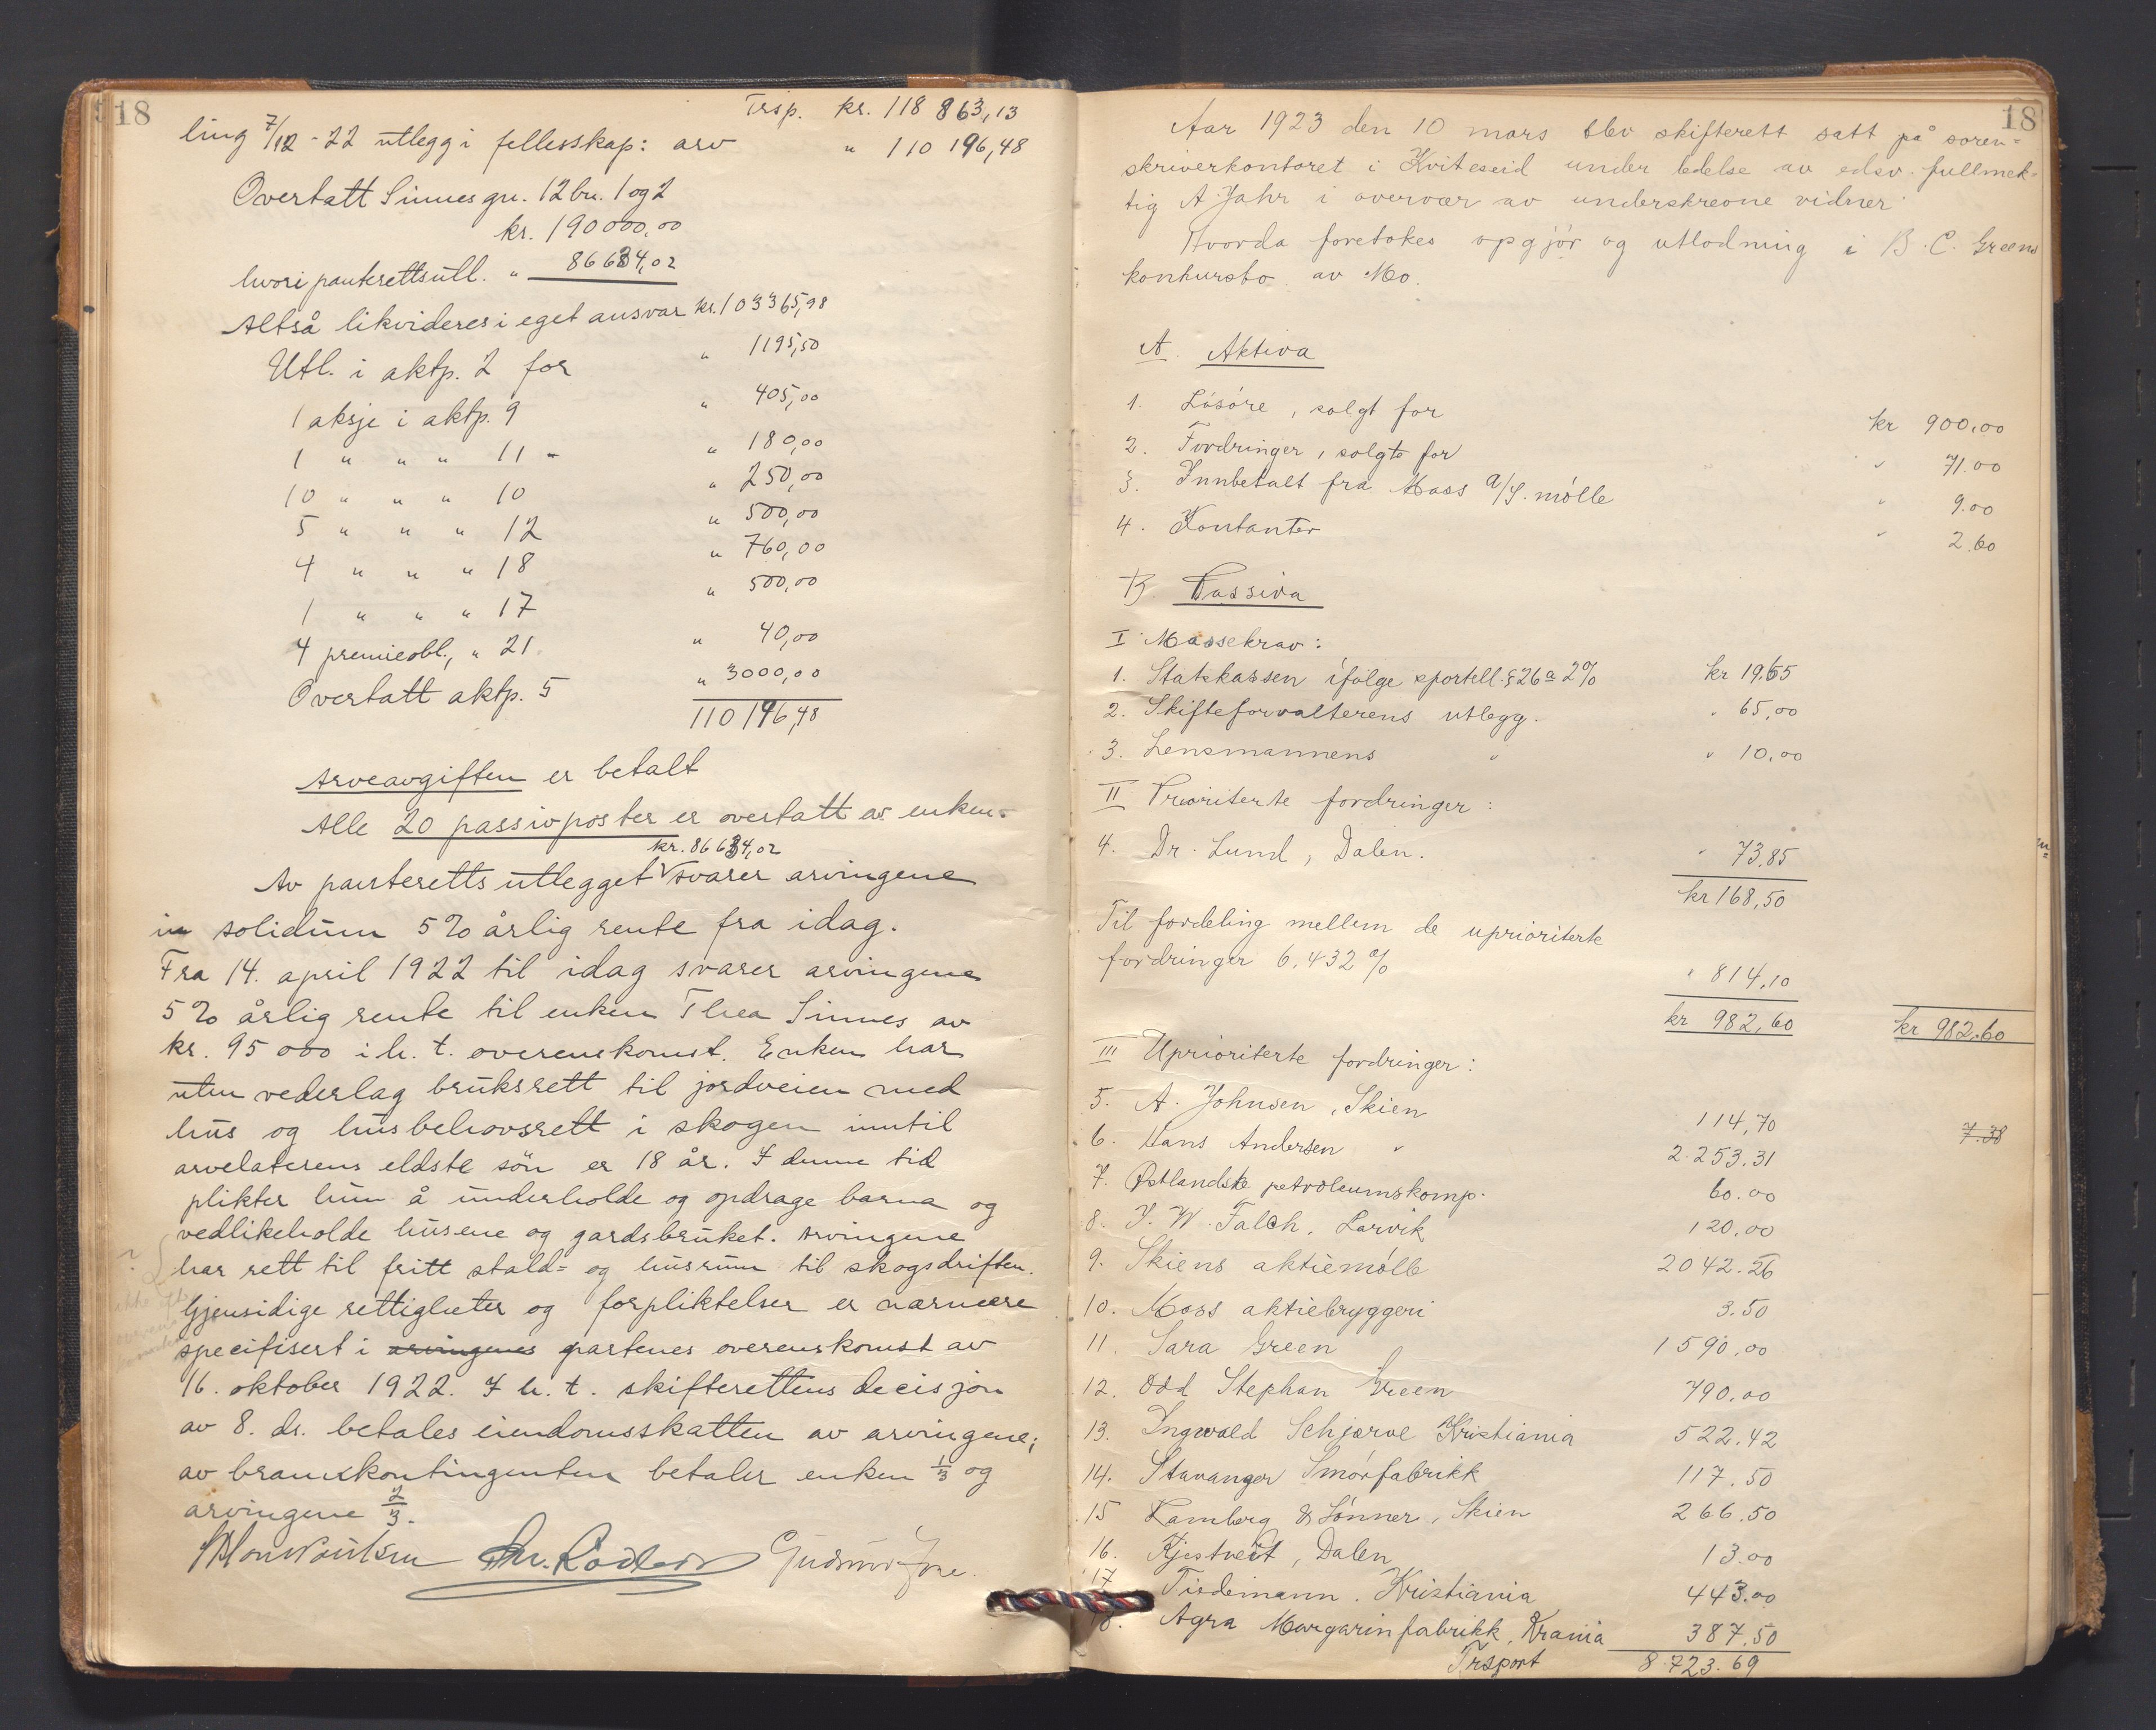 18
Trsp. kr. 118 863,13
ling 7/12 - 22 utlegg i fellesskap: arv " 110 196,48
Overtatt Sinnes gn. 12 bn. 1 og 2
kr. 190000,00
hvori panterettsutl. " 86634,02
Altså likvideres i eget ansvar kr. 103365,98
Utl. i aktp. 2 for " 1195,50
1 aksje i aktp. 9 " 405,00
1 " " " 11 - " 180,00
10 " " " 10 " 250,00
5 " " " 12 " 500,00
4 " " " 18 " 760,00
1 " " " 17 " 500,00
4 premieobl., " 21. " 40,00
Overtatt aktp. 5 " 3000,00
110 196,48
Arveavgiften er betalt
Alle 20 passivposter er overtatt av enken.
kr. 86634,02
Av panteretts utlegget svarer arvingene
in solidum 5% årlig rente fra idag.
Fra 14. april 1922 til idag svarer arvingene
5% årlig rente til enken Thea Sinnes av
kr. 95 000 i h. t. overenskomst. Enken har
uten vederlag bruksrett til jordveien med
hus og husbehovsrett i skogen inntil
arvelaterens eldste sön er 18 år. I denne tid
plikter hun å underholde og opdrage barna og
vedlikeholde husene og gardsbruket. Arvingene
har rett til fritt stald= og husrum til skogsdriften.
Gjensidige rettigheter og forpliktelser er nærmere
specifisert i arvingenes partenes overenskomst av
16. oktober 1922. I h. t. skifterettens decisjon
av 8. ds. betales eiendomsskatten av arvingene;
av brannkontingenten betaler enken 1/3 og
arvingene 2/3.
18
Aar 1923 den 10 mars blev skifterett satt på soren=
skriverkontoret i Kviteseid under ledelse av edsv. fullmek=
tig A. Jahr i overvær av underskrevne vidner
Hvorda foretokes opgjör og utlodning i B. C. Greens
konkursbo av Mo.
A. Aktiva
1. Lösöre, solgt for kr 900,00
2. Fordringer, solgt for " 71.00
3. Innbetalt fra Moss a/S. mölle " 9.00
4. Kontanter " 2.60
B. Passiva
I Massekrav:
1. Statskassen ifölge sportell. § 26 a 2% kr 19.65
2. Skifteforvalterens utlegg. " 65,00
3. Lensmannens " " 10,00
II Prioriterte fordringer:
4. Dr. Lund, Dalen. " 73,85
kr 168,50
Til fordeling mellem de uprioriterte
fordringer 6.432 % " 814,10
kr 982,60 kr 982.60
III Uprioriterte fordringer:
5. A. Johnsen, Skien 114,70 7.38
6. Hans Andersen " 2.253.31
7. Østlandske petroleumskomp. 60.00
8. J. W. Falch, Larvik 120,00
9. Skiens aktiemölle 2042.26
10. Moss aktiebryggeri 3.50
11. Sara Green 1590,00
12. Odd Stephan Green 790.00
13. Ingwald Schjærve Kristiania 522.42
14. Stavanger Smörfabrikk 117.50
15 Ramberg & Sönner, Skien 266.50
16. Kjestveit, Dalen 13.00
17 Tiedemann. Kristiania 443.00
18. Agra Margarinfabrikk, Krania 387.50
Trsport 8.723.69